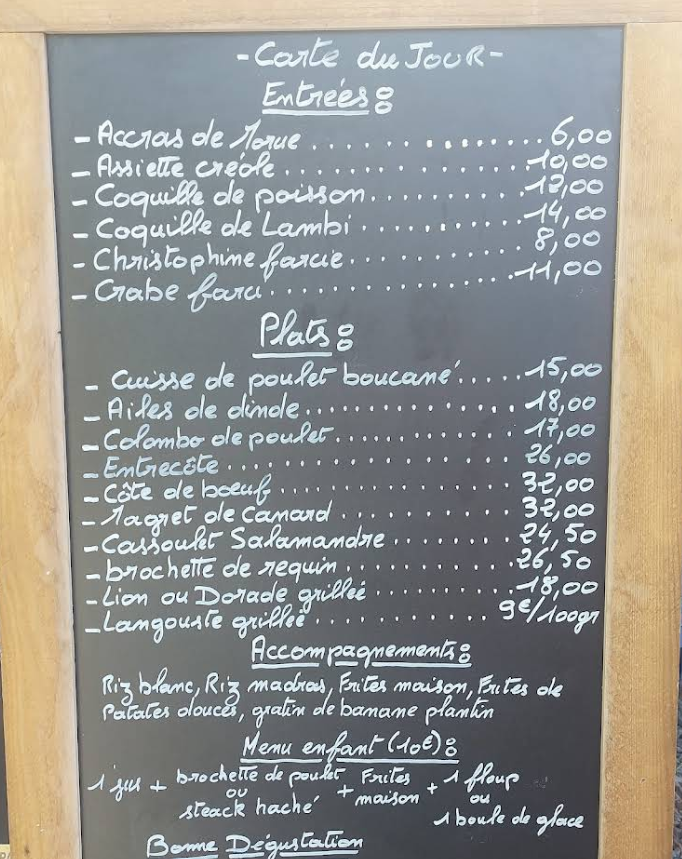 -Carte du Jour-
Entrées:
- Accras de Morue ................ 6,00
- Assiette créole ................ 10,00
- Coquille de poisson ............ 12,00
- Coquille de Lambi .............. 14,00
- Christophine farcie ............ 8,00
- Crabe farci .................... 11,00
Plats:
- Cuisse de poulet boucané ..... 15,00
- Ailes de dinde ................. 18,00
- Colombo de poulet .............. 17,00
- Entrecôte ...................... 26,00
- Côte de boeuf .................. 32,00
- Magret de Canard ............... 32,00
- Cassoulet Salamandre ........... 24,50
- brochette de requin ............ 26,50
- Lion ou Dorade grilleé ......... 18,00
- Langouste grilleé .............. 9€/100gr
Accompagnements:
Riz blanc, Riz madras, Frites maison, Frites de
Patates douces, gratin de banane plantin
Menu enfant (10€):
1 jus + brochette de poulet ou steack haché + Frites maison + 1 floup ou 1 boule de glace
Bonne Dégustation